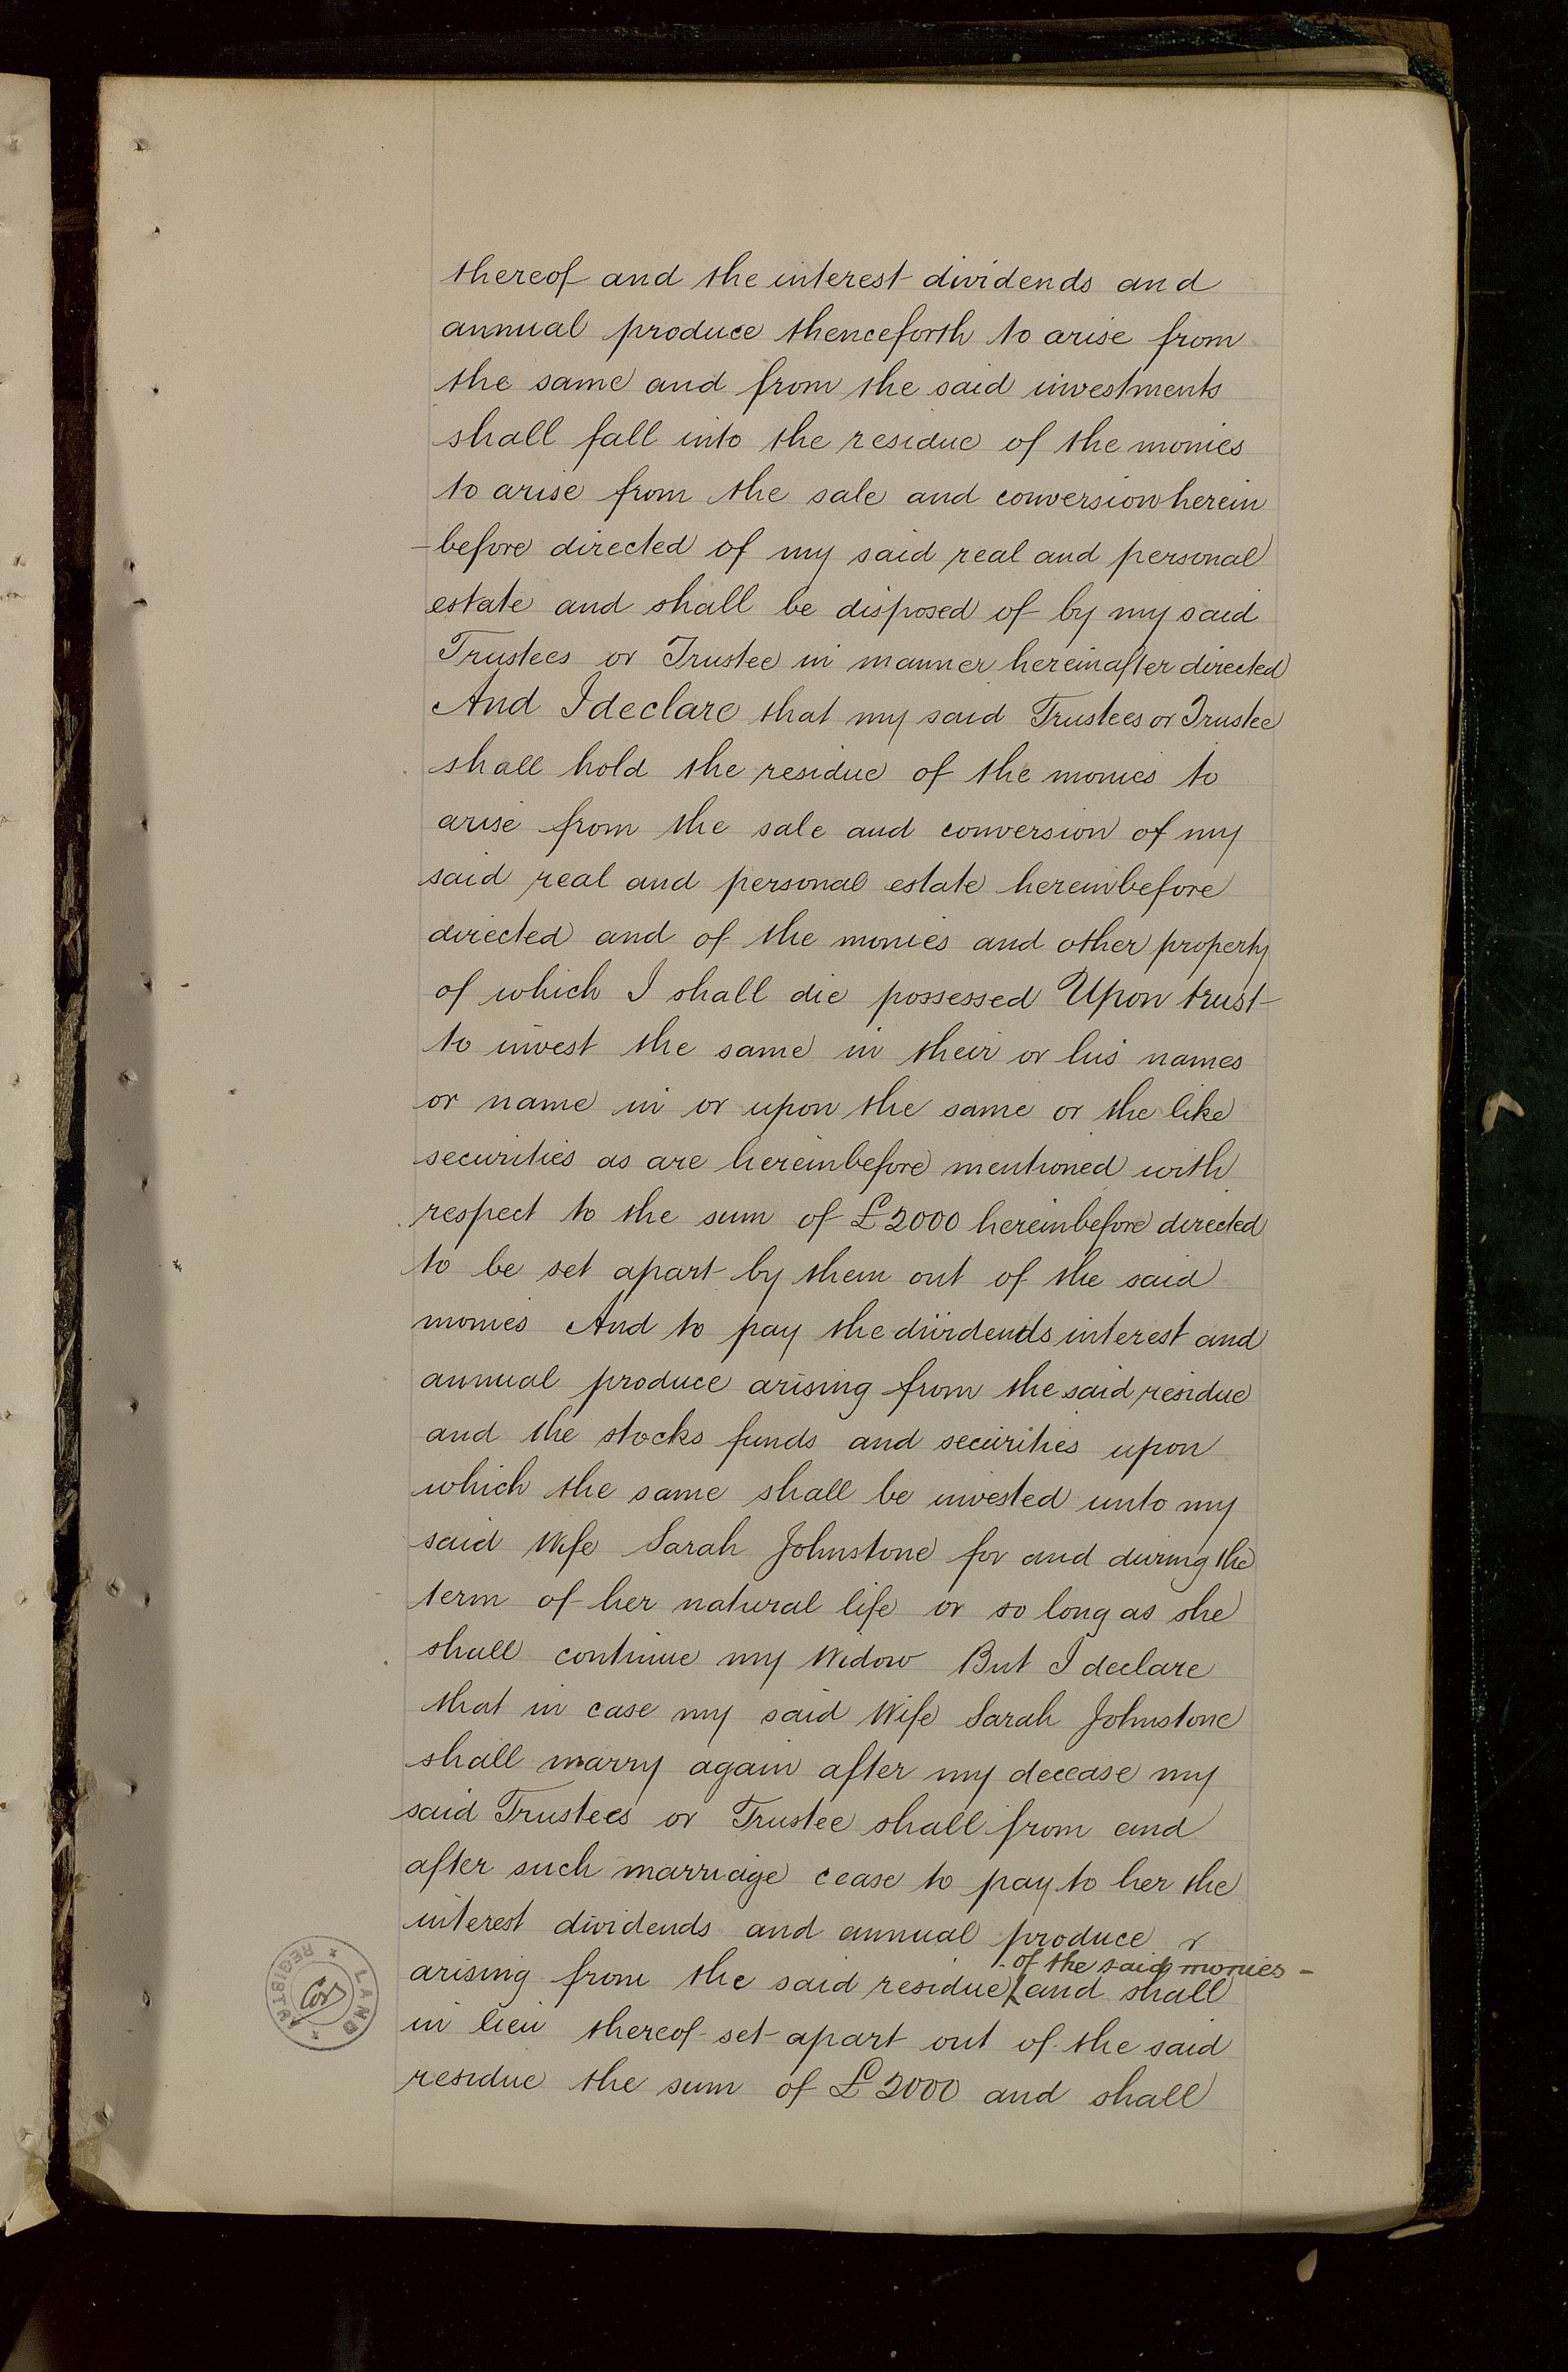 thereof and the interest dividends and
annual produce thenceforth to arise from
the same and from the said investments
shall fall into the residue of the monies
to arise from the sale and conversion herein
-before directed of my said real and personal
estate and shall be disposed of by my said
Trustees or Trustee in manner hereinafter directed
And I declare that my said Trustees or Trustee
shall hold the residue of the monies to
arise from the sale and conversion of my
said real and personal estate hereinbefore
directed and of the monies and other property
of which I shall die possessed Upon trust
to invest the same in their or his names
or name in or upon the same or the like
securities as are hereinbefore mentioned with
respect to the sum of £2000 hereinbefore directed
to be set apart by them out of the said
monies And to pay the dividends interest and
annual produce arising from the said residue
and the stocks funds and securities upon
which the same shall be invested unto my
said Wife Sarah Johnstone for and during the
term of her natural life or so long as she
shall continue my Widow But I declare
that in case my said Wife Sarah Johnstone
shall marry again after my decease my
said Trustees or Trustee shall from and
after such marriage cease to pay to her the
interest dividends and annual produce
of the said monies
arising from the said residue and shall
in lieu thereof set apart out of the said
residue the sum of £2000 and shall
LAND REGISTRY